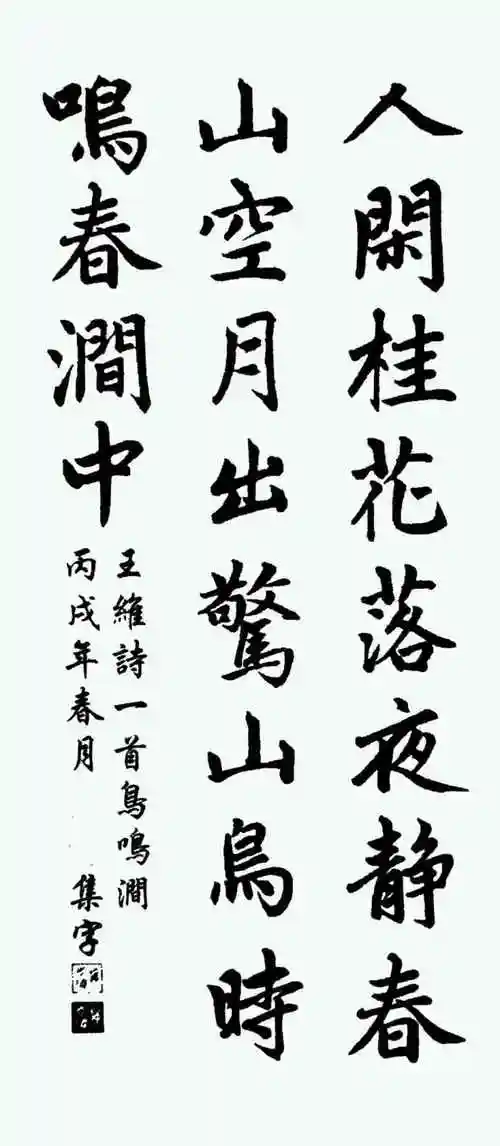 人閑桂花落夜静春
山空月出驚山鳥時
鳴春澗中
王維詩一首鳥鳴澗
丙戌年春月 集字